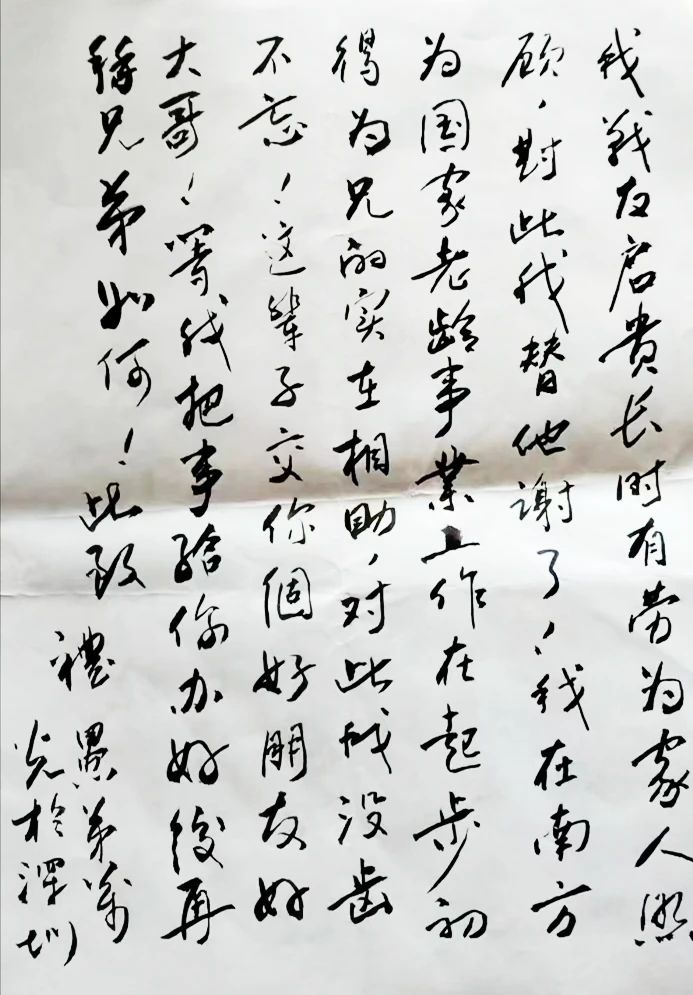 我戰友启貴长时有劳为家人照
顾，對此我替他谢了！我在南方
为国家老龄事業工作在起步初
得为兄的实在相助，对此我没齿
不忘！这輩子交你個好朋友好
大哥！等我把事给你办好後再
称兄弟如何！此致
禮
愚弟
光於深圳